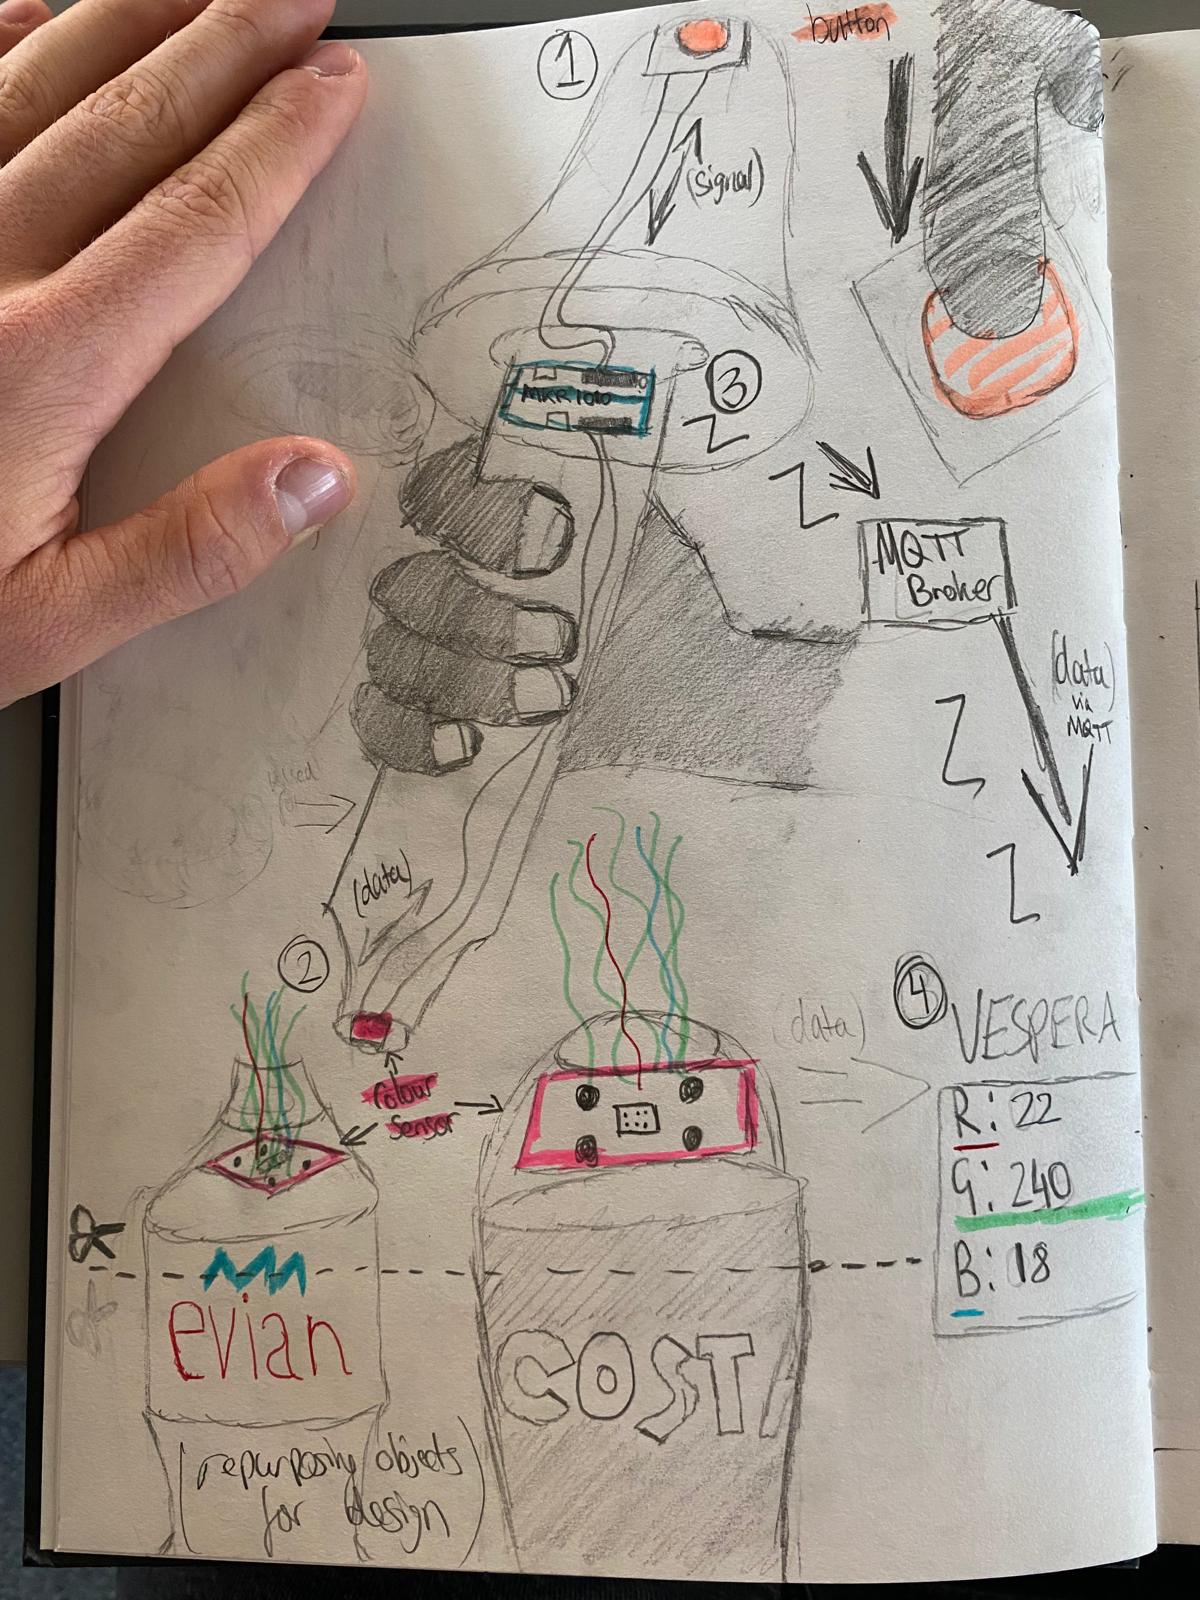 1
button
(signal)
3
MKR1010
MQTT
Broker
(data)
via
MQTT
(data)
2
Colour
Sensor
(data)
4
VESPERA
R: 22
G: 240
B: 18
evian
COSTA
(repurposing objects
for design)